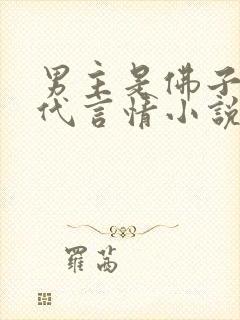 男主是佛子
代言情小說
羅茜